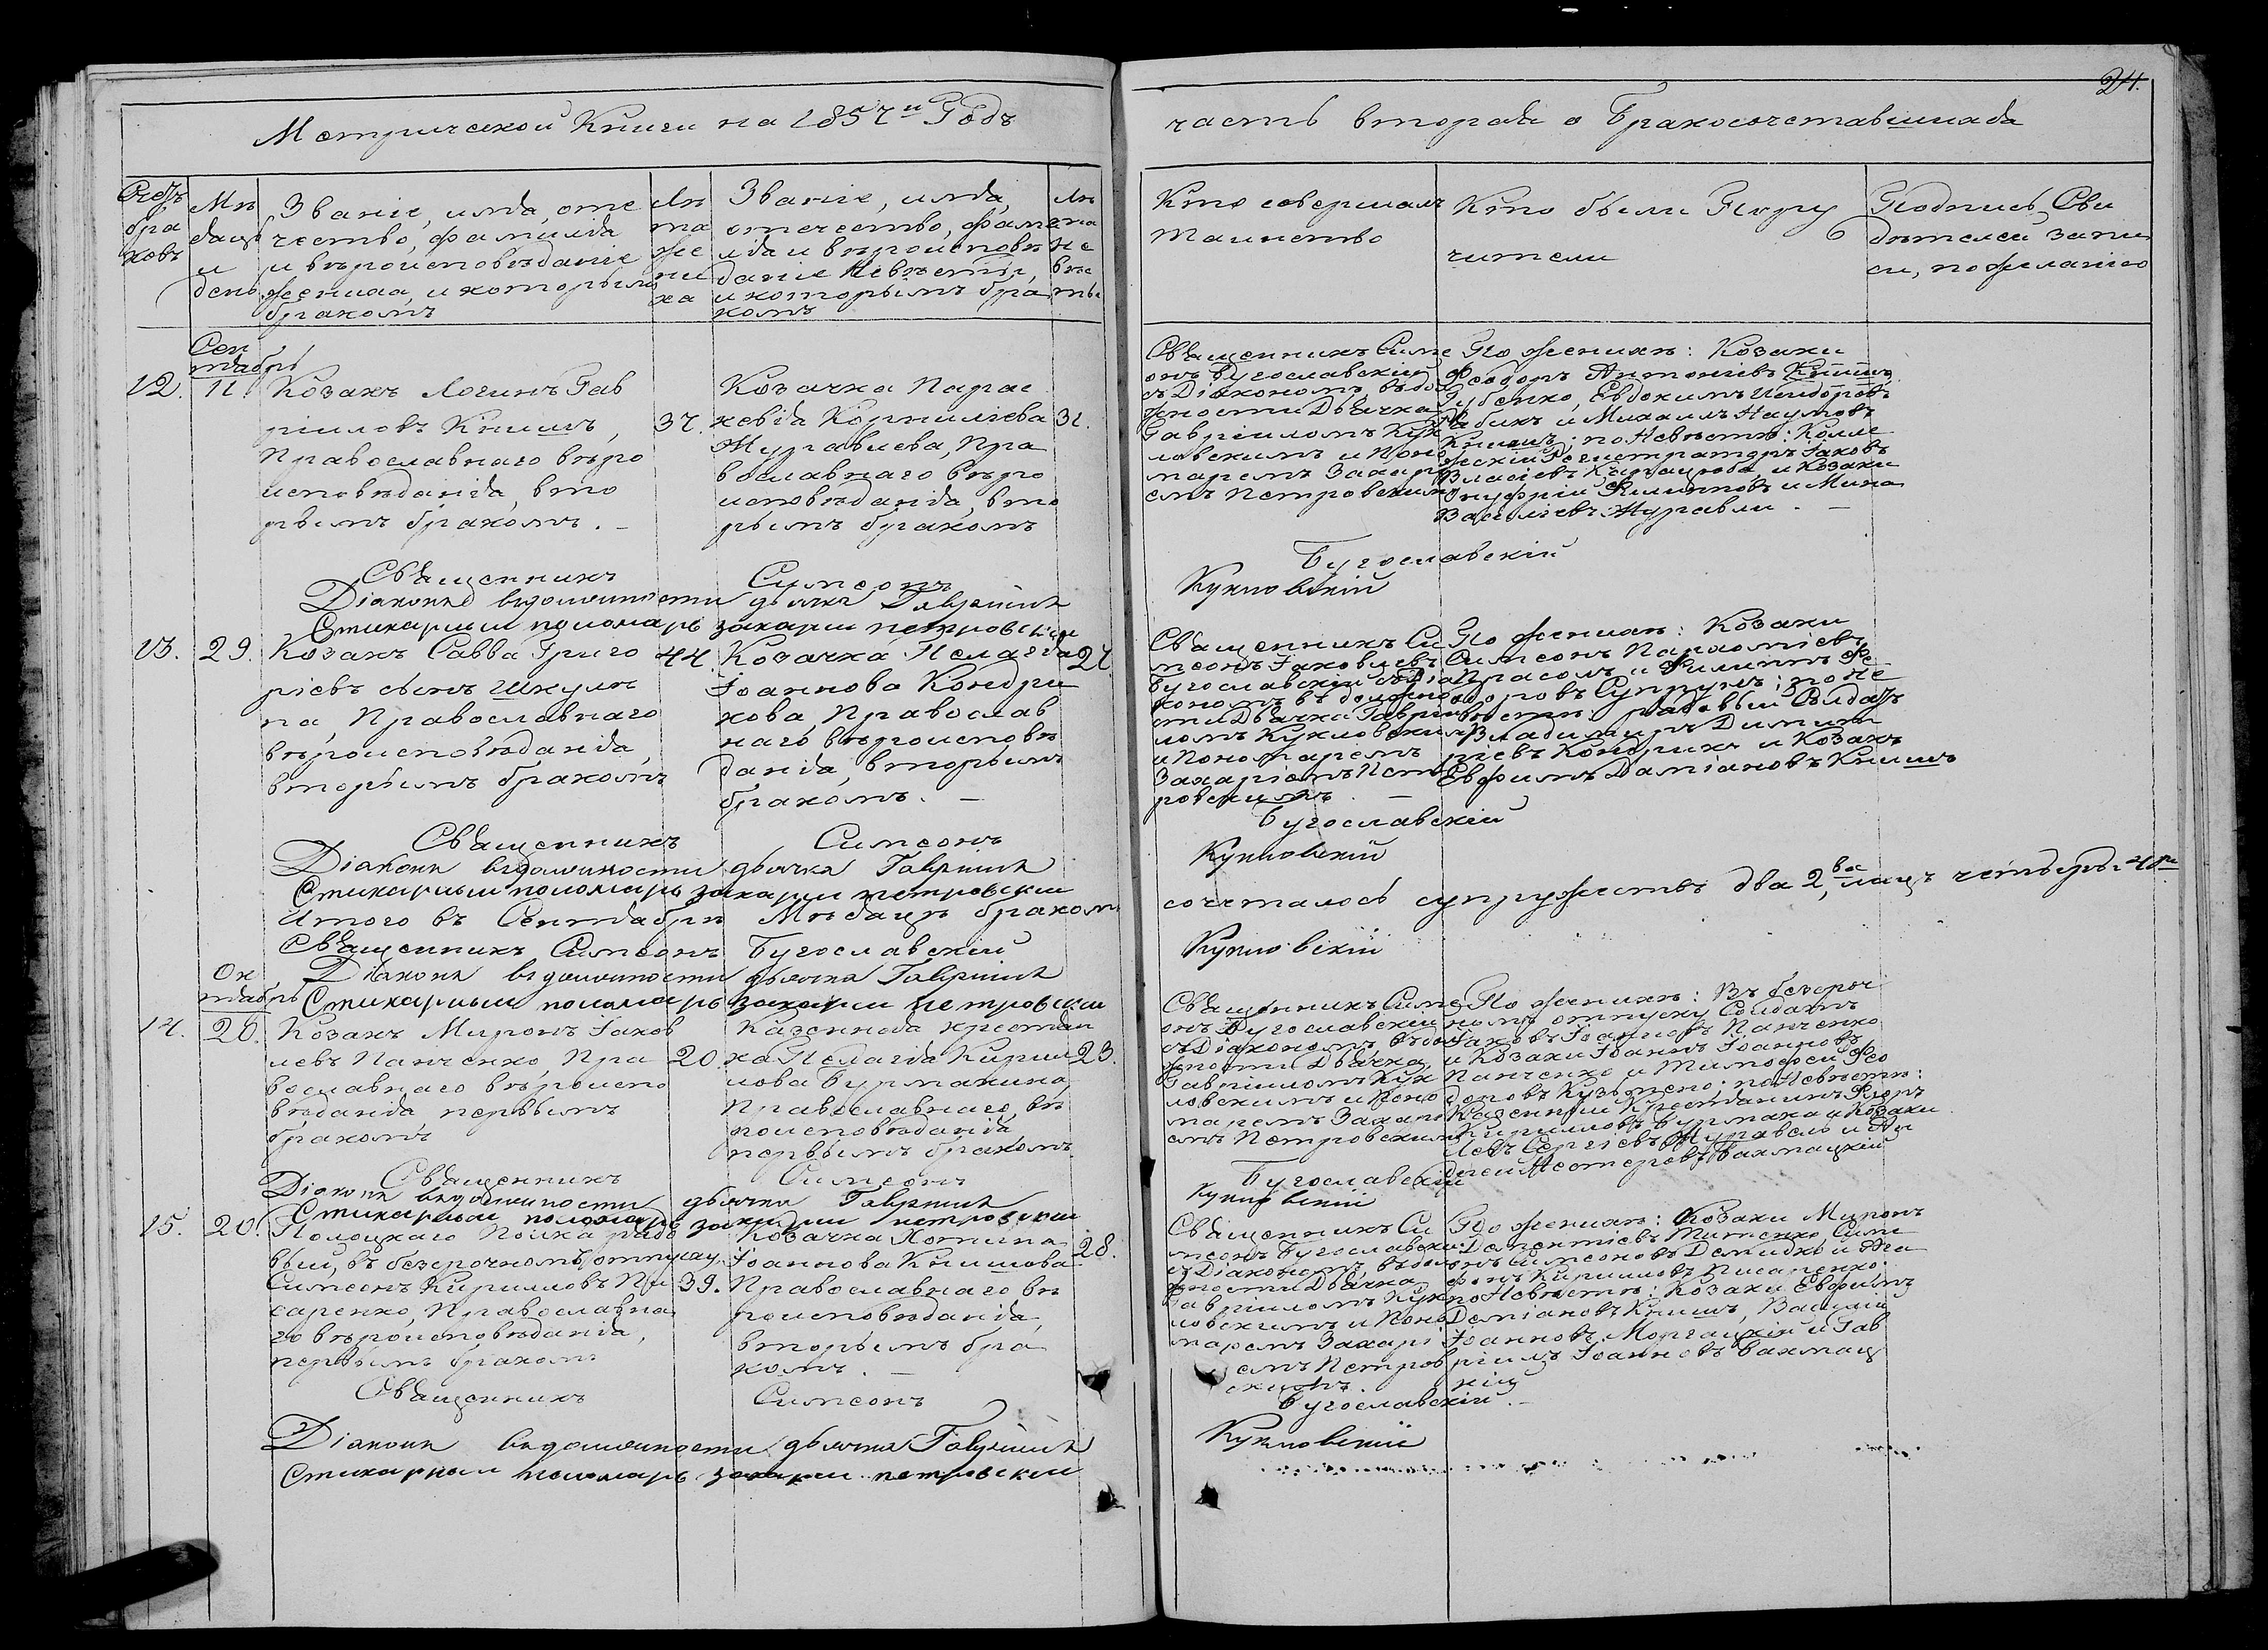 24.
Метрической Книги на 1857й Годъ
часть вторая о Бракосочетавшихся
Счетъ бра ковъ
Мѣ сяцъ и день
Званіе, имя, оте
чество, фамилія
и вѣроисповѣданіе
жениха, и которымъ
бракомъ
Лѣ та же ни ха
Званіе, имя,
отечество, фами
лія и вѣроисповѣ
даніе Невѣсты,
и которымъ бра
комъ
Лѣ та не вѣс ты
Кто совершалъ
таинство
Кто были Пору
чители
Подпись Сви
дѣтелей запи
си, по желанію
Сен
тябрь
12.
11.
Козакъ Логинъ Гав
ріиловъ Книшъ,
Православнаго вѣро
исповѣданія, вто
рымъ бракомъ. –
37.
Козачка Парас
кевія Корниліева
Журавлева, Пра
вославнаго вѣро
исповѣданія, вто
рымъ бракомъ
31.
Священникъ Симе
онъ Бугославскій
съ Діакономъ, въ дол
жности Дьячка
Гавріиломъ Кук
ловскимъ и Поно
маремъ Захарі
емъ Петровскимъ
По женихѣ: Козаки
Феодоръ Антоніевъ Книшъ
Губенко, Евдокимъ Исидоровъ
Бабикъ и Михаилъ Наумовъ
Книшъ; по Невѣстѣ: Колле
жскій Регистраторъ Іаковъ
Власіевъ и Козаки
Онуфрій Филиповъ и Мина
Василіевъ Журавли. –
Священникъ Симеонъ Бугославскій
Діаконъ въ должности дьячка Гавріилъ Кукловскій
Стихарный пономарь Захарій Петровскій
13.
29.
Козакъ Савва Григо
ріевъ сынъ Шкуля
та, Православнаго
вѣроисповѣданія,
вторымъ бракомъ
44.
Козачка Пелагія
Іоаннова Кондри
кова, Православ
наго вѣроисповѣ
данія, вторымъ
бракомъ. –
27.
Священникъ Си
меонъ Іаковлевъ
Бугославскій съ Діа
кономъ въ должно
сти Дьячка Гавріи
ломъ Кукловскимъ
и Пономаремъ
Захаріемъ Пет
ровскимъ. –
По женихѣ: Козаки
Симеонъ Пархоміевъ
Прасолъ и Филиппъ Фе
одоровъ Супрунъ; по Не
вѣстѣ: рядовый Солдатъ
Владимиръ Димит
ріевъ Кондрикъ и Козакъ
Евфимъ Даміановъ Книшъ
Священникъ Симеонъ Бугославскій
Діаконъ въ должности дьячка Гавріилъ Кукловскій
Стихарный пономарь Захарій Петровскій
Итого въ Сентябрѣ Мѣсяцѣ бракомъ сочеталось супружествъ два 2ва, лицъ четыре 4ре
Священникъ Симеонъ Бугославскій
Діаконъ въ должности дьячка Гавріилъ Кукловскій
Стихарный пономарь Захарій Петровскій
Ок
тябрь
14.
20.
Козакъ Миронъ Іаков
левъ Панченко, Пра
вославнаго вѣроиспо
вѣданія первымъ
бракомъ
20.
Казенная крестьян
ка Пелагія Кирил
лова Бурмакина
Православнаго вѣ
роисповѣданія
первымъ бракомъ
23.
Священникъ Симе
онъ Бугославскій
съ Діакономъ, въ дол
жности Дьячка,
Гавріиломъ Кук
ловскимъ и Поно
маремъ Захарі
емъ Петровскимъ
По женихѣ: Въ безсроч
номъ отпуску Солдатъ
Іаковъ Іоанновъ Панченко
и Козаки Іоаннъ Іоанновъ
Панченко и Тимофей Фео
доровъ Кузьменко; по Невѣстѣ:
Казенный Крестьянинъ
Кирилловъ Бурмака и Козаки
Левъ Сергіевъ Журавель и Ан
дрей Нестеровъ Бахмацкій
Священникъ Симеонъ Бугославскій
Діаконъ въ должности дьячка Гавріилъ Кукловскій
Стихарный пономарь Захарій Петровскій
15.
20.
Полоцкаго Полка рядо
вый, въ безсрочномъ отпуску,
Симеонъ Кирилловъ Пи
саренко, Православна
го вѣроисповѣданія,
первымъ бракомъ
39.
Козачка
Іоаннова Книшова
Православнаго вѣ
роисповѣданія,
вторымъ бра
комъ. –
28.
Священникъ Си
меонъ Бугославскій
съ Діакономъ, въ дол
жности Дьячка
Гавріиломъ Кук
ловскимъ и Поно
маремъ Захарі
емъ Петров
скимъ.
По женихѣ: Козаки Миронъ
Дементіевъ Титенко, Симе
онъ Симеоновъ Демидко и Ага
фонъ Кирилловъ Писаренко.
по Невѣстѣ: Козаки Евфимъ
Даміановъ Книшъ, Василій
Іоанновъ Моргацкій и Гав
ріилъ Іоанновъ Бахмац
кій
Священникъ Симеонъ Бугославскій. –
Діаконъ въ должности дьячка Гавріилъ Кукловскій
Стихарный пономарь Захарій Петровскій